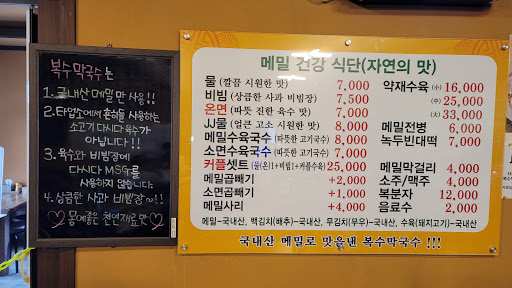 복수막국수는
1. 국내산 메밀만 사용!!
2. 타업소에서 흔히들 사용하는
소고기 다시다 육수가
아닙니다!!
3. 육수와 비빔장에
다시다 MSG를
사용하지 않습니다.
4. 상큼한 사과 비빔장~!!
♡몸에좋은 천연재료 맛♡
메밀 건강 식단(자연의 맛)
물 (깔끔 시원한 맛) 7,000
비빔 (상큼한 사과 비빔장) 7,500
온면 (따뜻 진한 육수 맛) 7,000
JJ물 (얼큰 고소 시원한 맛) 8,000
메밀수육국수 (따뜻한 고기국수) 8,000
소면수육국수 (따뜻한 고기국수) 7,000
커플셋트 (물(온)1+비빔1+커플수육) 25,000
메밀곱빼기 +2,000
소면곱빼기 +1,000
메밀사리 +4,000
약재수육 (小) 16,000
(中) 25,000
(大) 33,000
메밀전병 6,000
녹두빈대떡 7,000
메밀막걸리 4,000
소주/맥주 4,000
복분자 12,000
음료수 2,000
메밀-국내산, 백김치(배추)-국내산, 무김치(무우)-국내산, 수육(돼지고기)-국내산
국내산 메밀로 맛을낸 복수막국수 !!!